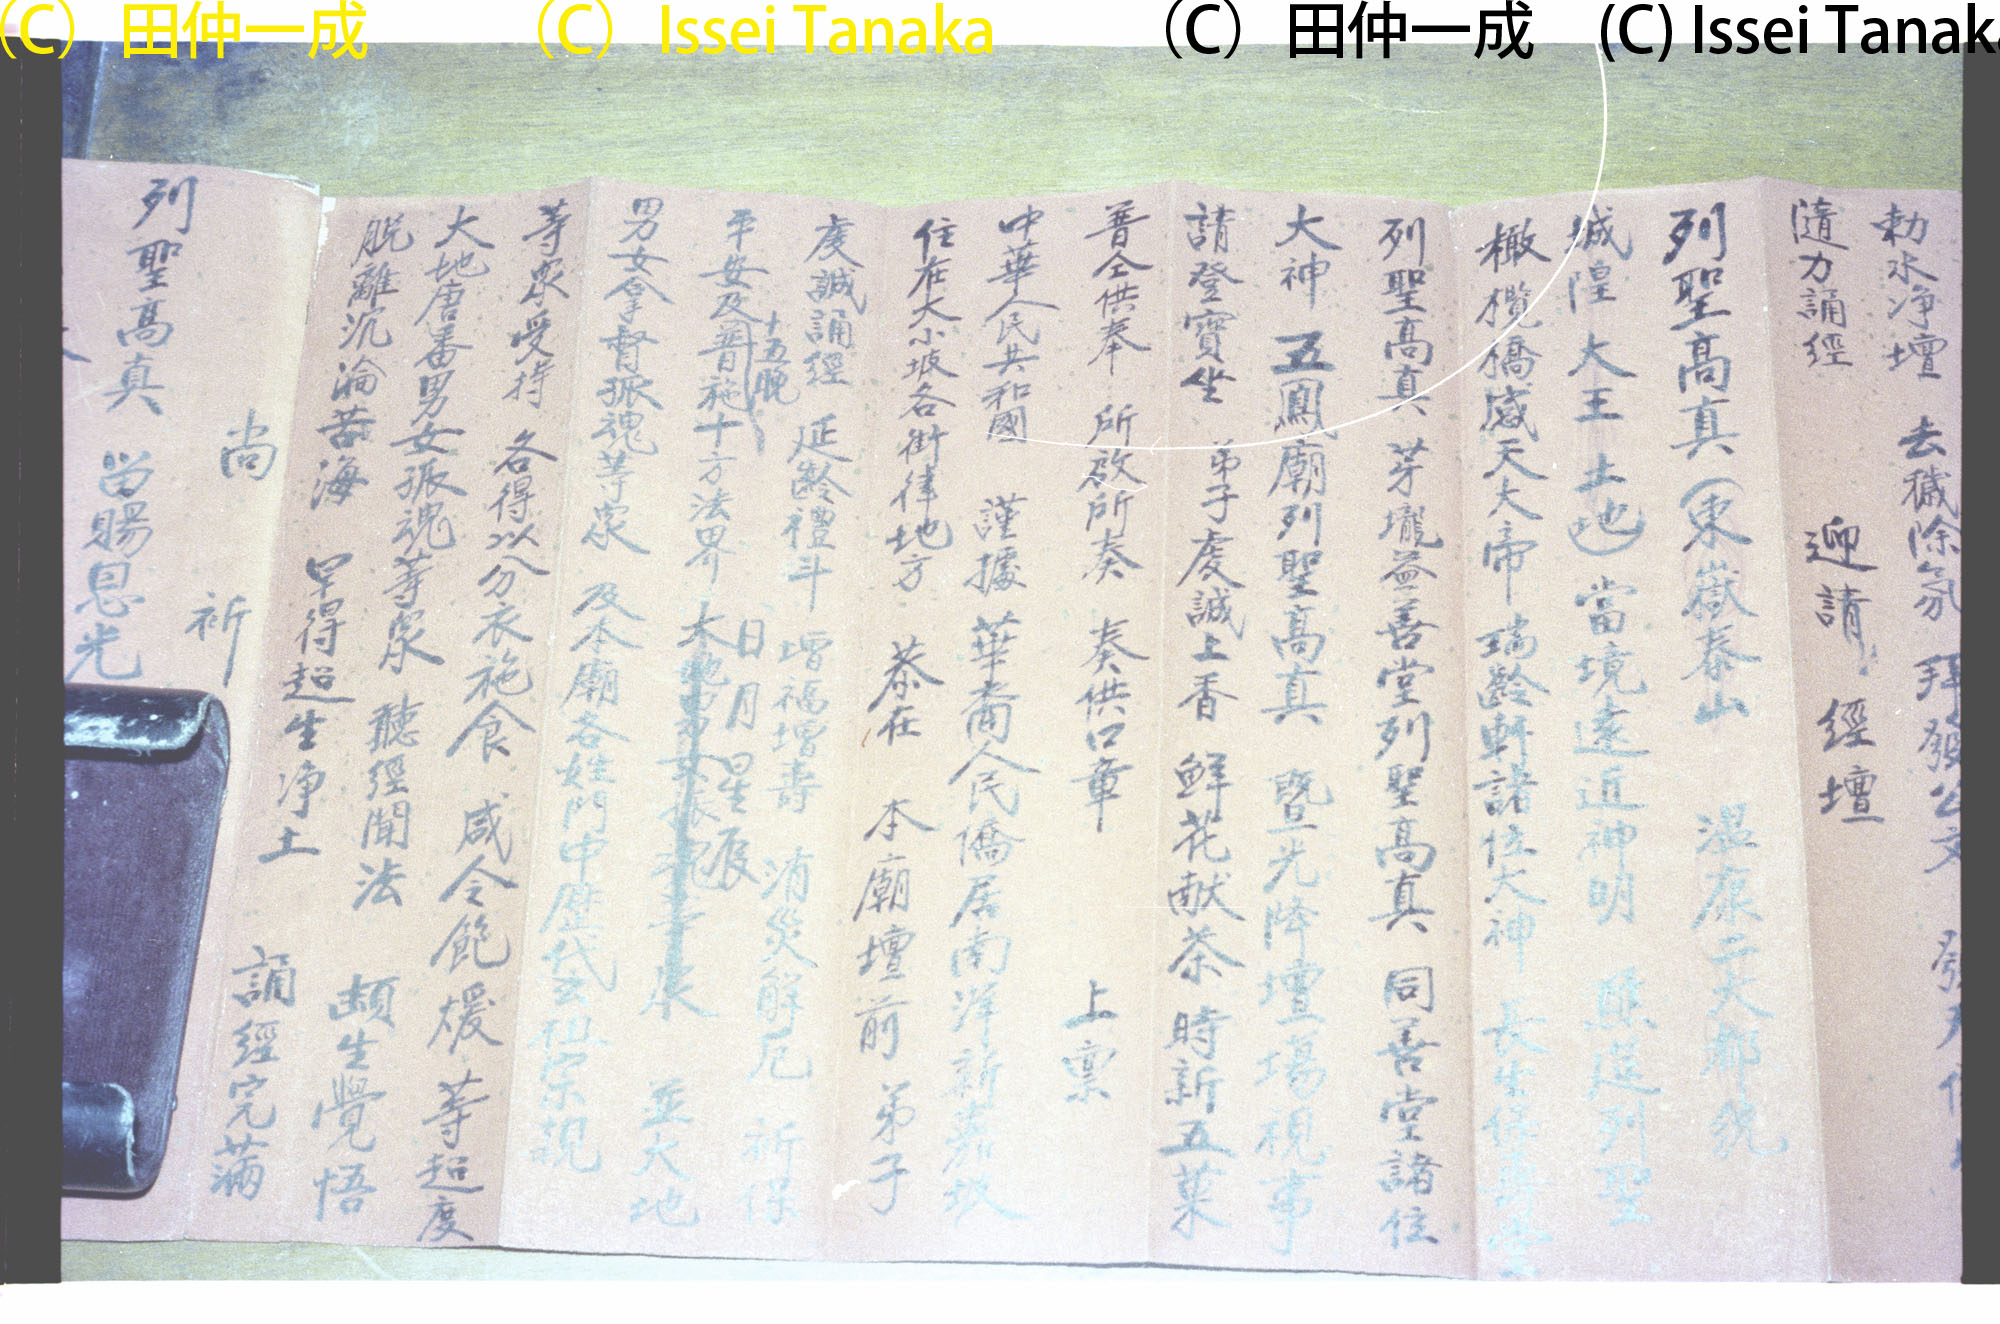 (C) 田仲一成 (C) Issei Tanaka (C) 田仲一成 (C) Issei Tanaka
勅水净壇 去穢除氛 拜發公文
隨力誦經 迎請 經壇
列聖高真(東嶽泰山 温康二大都統
城隍 大王 土地) 當境遠近神明 無邊列聖
橄欖橋感天大帝 瑞齡軒諸位大神 長生保壽堂
列聖高真 芽壠益善堂列聖高真 同善堂諸位
大神 五鳳廟列聖高真 暨光降壇場視事
請登寶坐 弟子虔誠上香 鮮花献茶 時新五菓
普仝供奉 所啟所奏 奏供口章 上禀
中華人民共和國 謹據 華裔人民僑居南洋新嘉坡
住在大小坡各街律地方 恭在 本廟壇前 弟子
虔誠誦經 延齡禮斗 增福增壽 消災解厄 祈保
平安及普施十方法界 日月星辰 並大地
十五晚
男女拿督孤魂等眾 及本廟各姓門中歷代祖宗親
等眾受持 各得以分衣施食 咸令飽煖 等超度
大地唐番男女孤魂等眾 聽經聞法 頓生覺悟
脱離沉淪苦海 早得超生净土 誦經完滿
尚 祈
列聖高真 留賜恩光